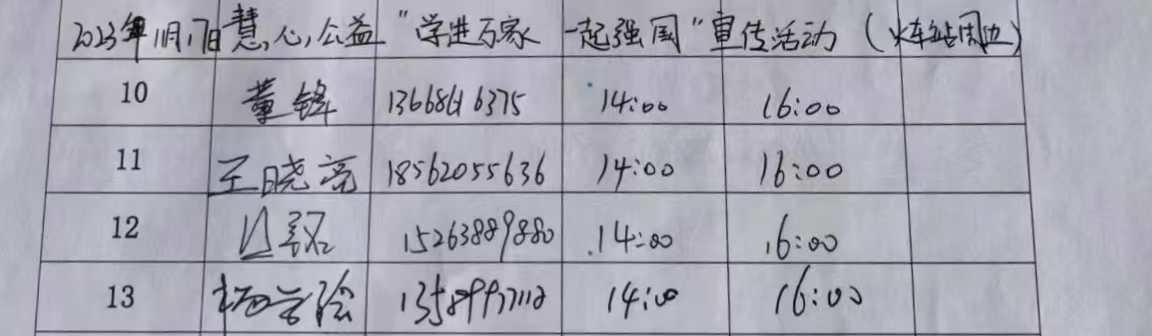 2023年11月17日慧心公益“学进万家 一起强国”宣传活动（火车站周边）
10 董锋 13668616375 14:00 16:00
11 王晓亮 18562055636 14:00 16:00
12 15263889880 14:00 16:00
13 14:00 16:00